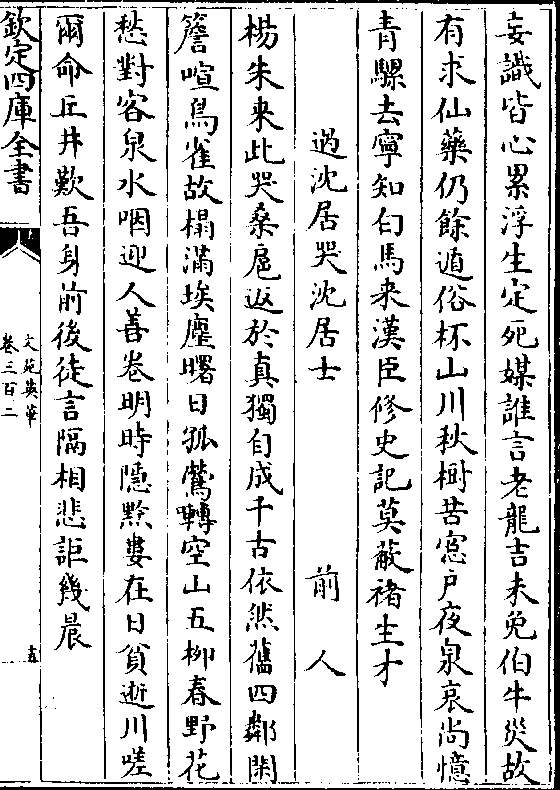 妄識皆心累浮生定死媒誰言老龍吉未免伯牛災故
有求仙藥仍餘遁俗杯山川秋樹苦窓户夜泉哀尚憶
青騾去寧知白馬来漢臣修史記莫蔽褚生才
過沈居哭沈居士　前人
楊朱来此哭桑扈返於真獨自成千古依然舊四鄰閑
簷喧鳥雀故榻滿埃塵曙日孤鶯囀空山五柳春野花
愁對客泉水咽迎人善卷明時隠黔婁在日貧逝川嗟
爾命丘井歎吾身前後徒言隔相悲詎幾晨
欽定四庫全書
文苑英華
卷三百二
十五